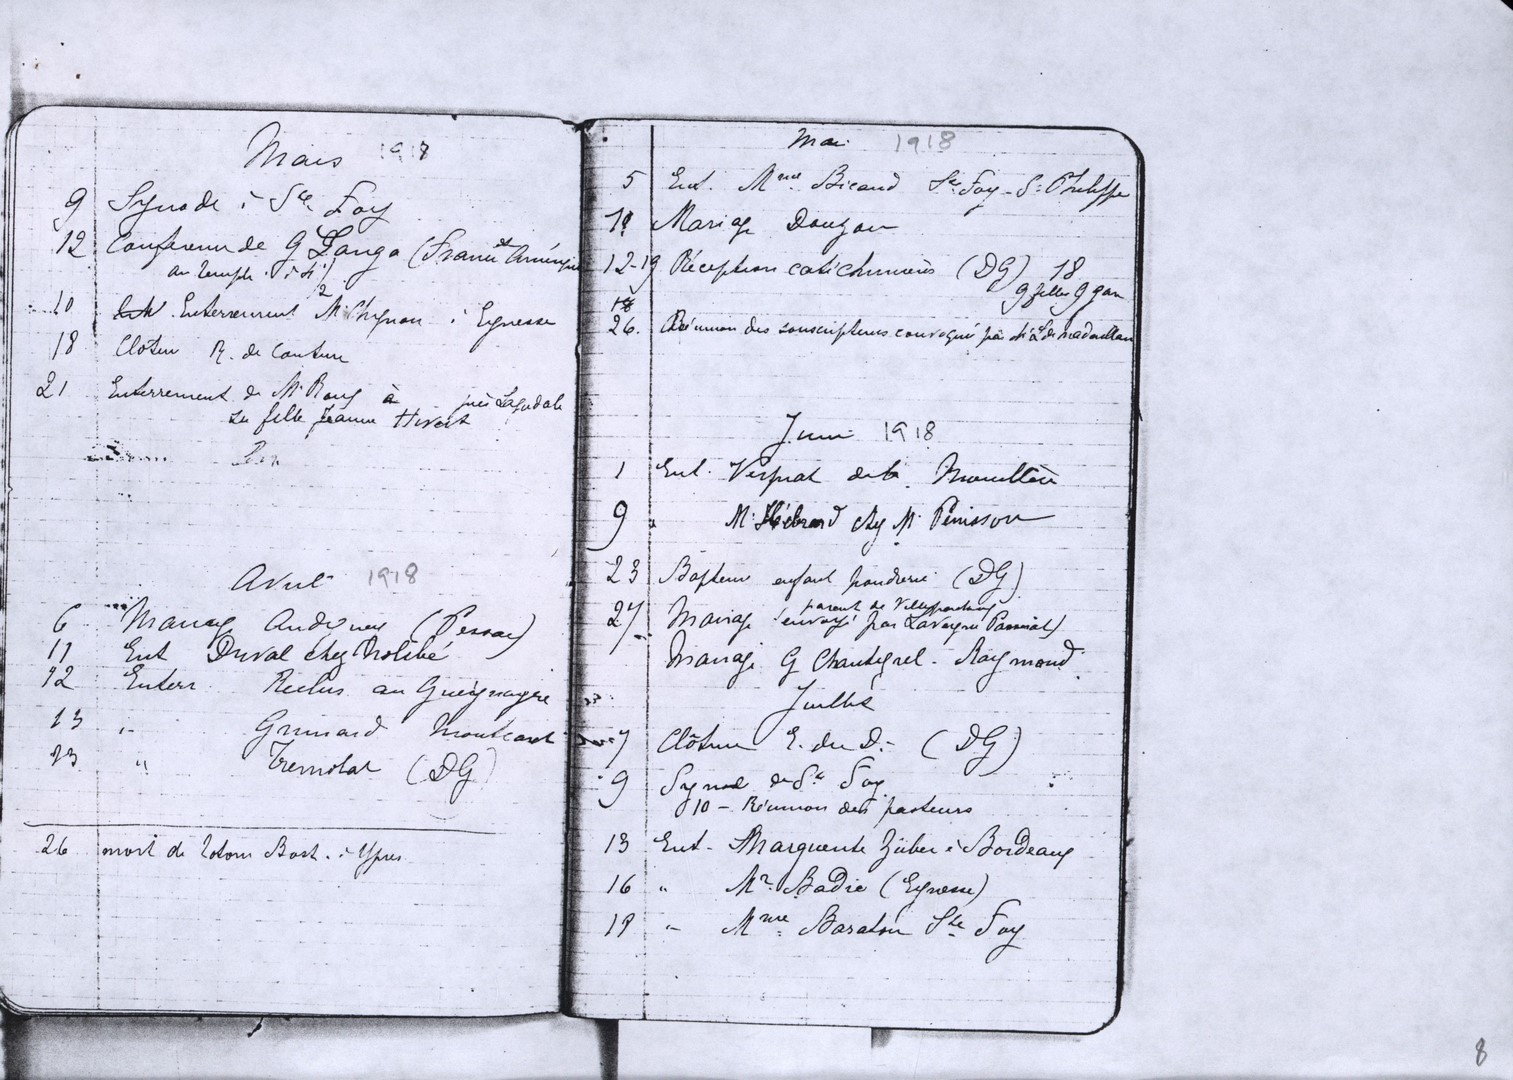 Mars 1918
9 Synode à Ste Foy
12 Conférence de G Lauga (France et Amérique
au temple à 4 1/2
10 Enterrement M. Chignon à Eynesse
18 Clôture R. de Couture
21 Enterrement de Mr Roux à près Lagudale
sa fille Jeanne Hivert
Avril 1918
6 Mariage (Pessac)
11 Ent Duval chez
12 Enterr. Reclus au
13 „ Grimard Montcaret
23 „ Tremolat (DG)
26 mort de Totom Bost à Ypres
Mai 1918
5 Ent. Mme Bicaud Ste Foy - St Philippe
11 Mariage Douzon
12-19 Réception catéchumènes (DG) 18
9 filles 9 gar
26. Réunion des souscripteurs convoqué par
Juin 1918
1 Ent. Vesprat de la Mouillère
9 „ M. Hébrard chez M. Penisson
23 Baptême enfant poudrerie (DG)
parent de
27 Mariage (envoyé par
Mariage G Chantegrel - Raymond
Juillet
7 Clôture E. du D. - (DG)
9 Synode de Ste Foy
10 - Réunion des pasteurs
13 Ent - Marguerite Züber à Bordeaux
16 „ Mr. Badie (Eynesse)
19 „ Mme Baraton Ste Foy
8